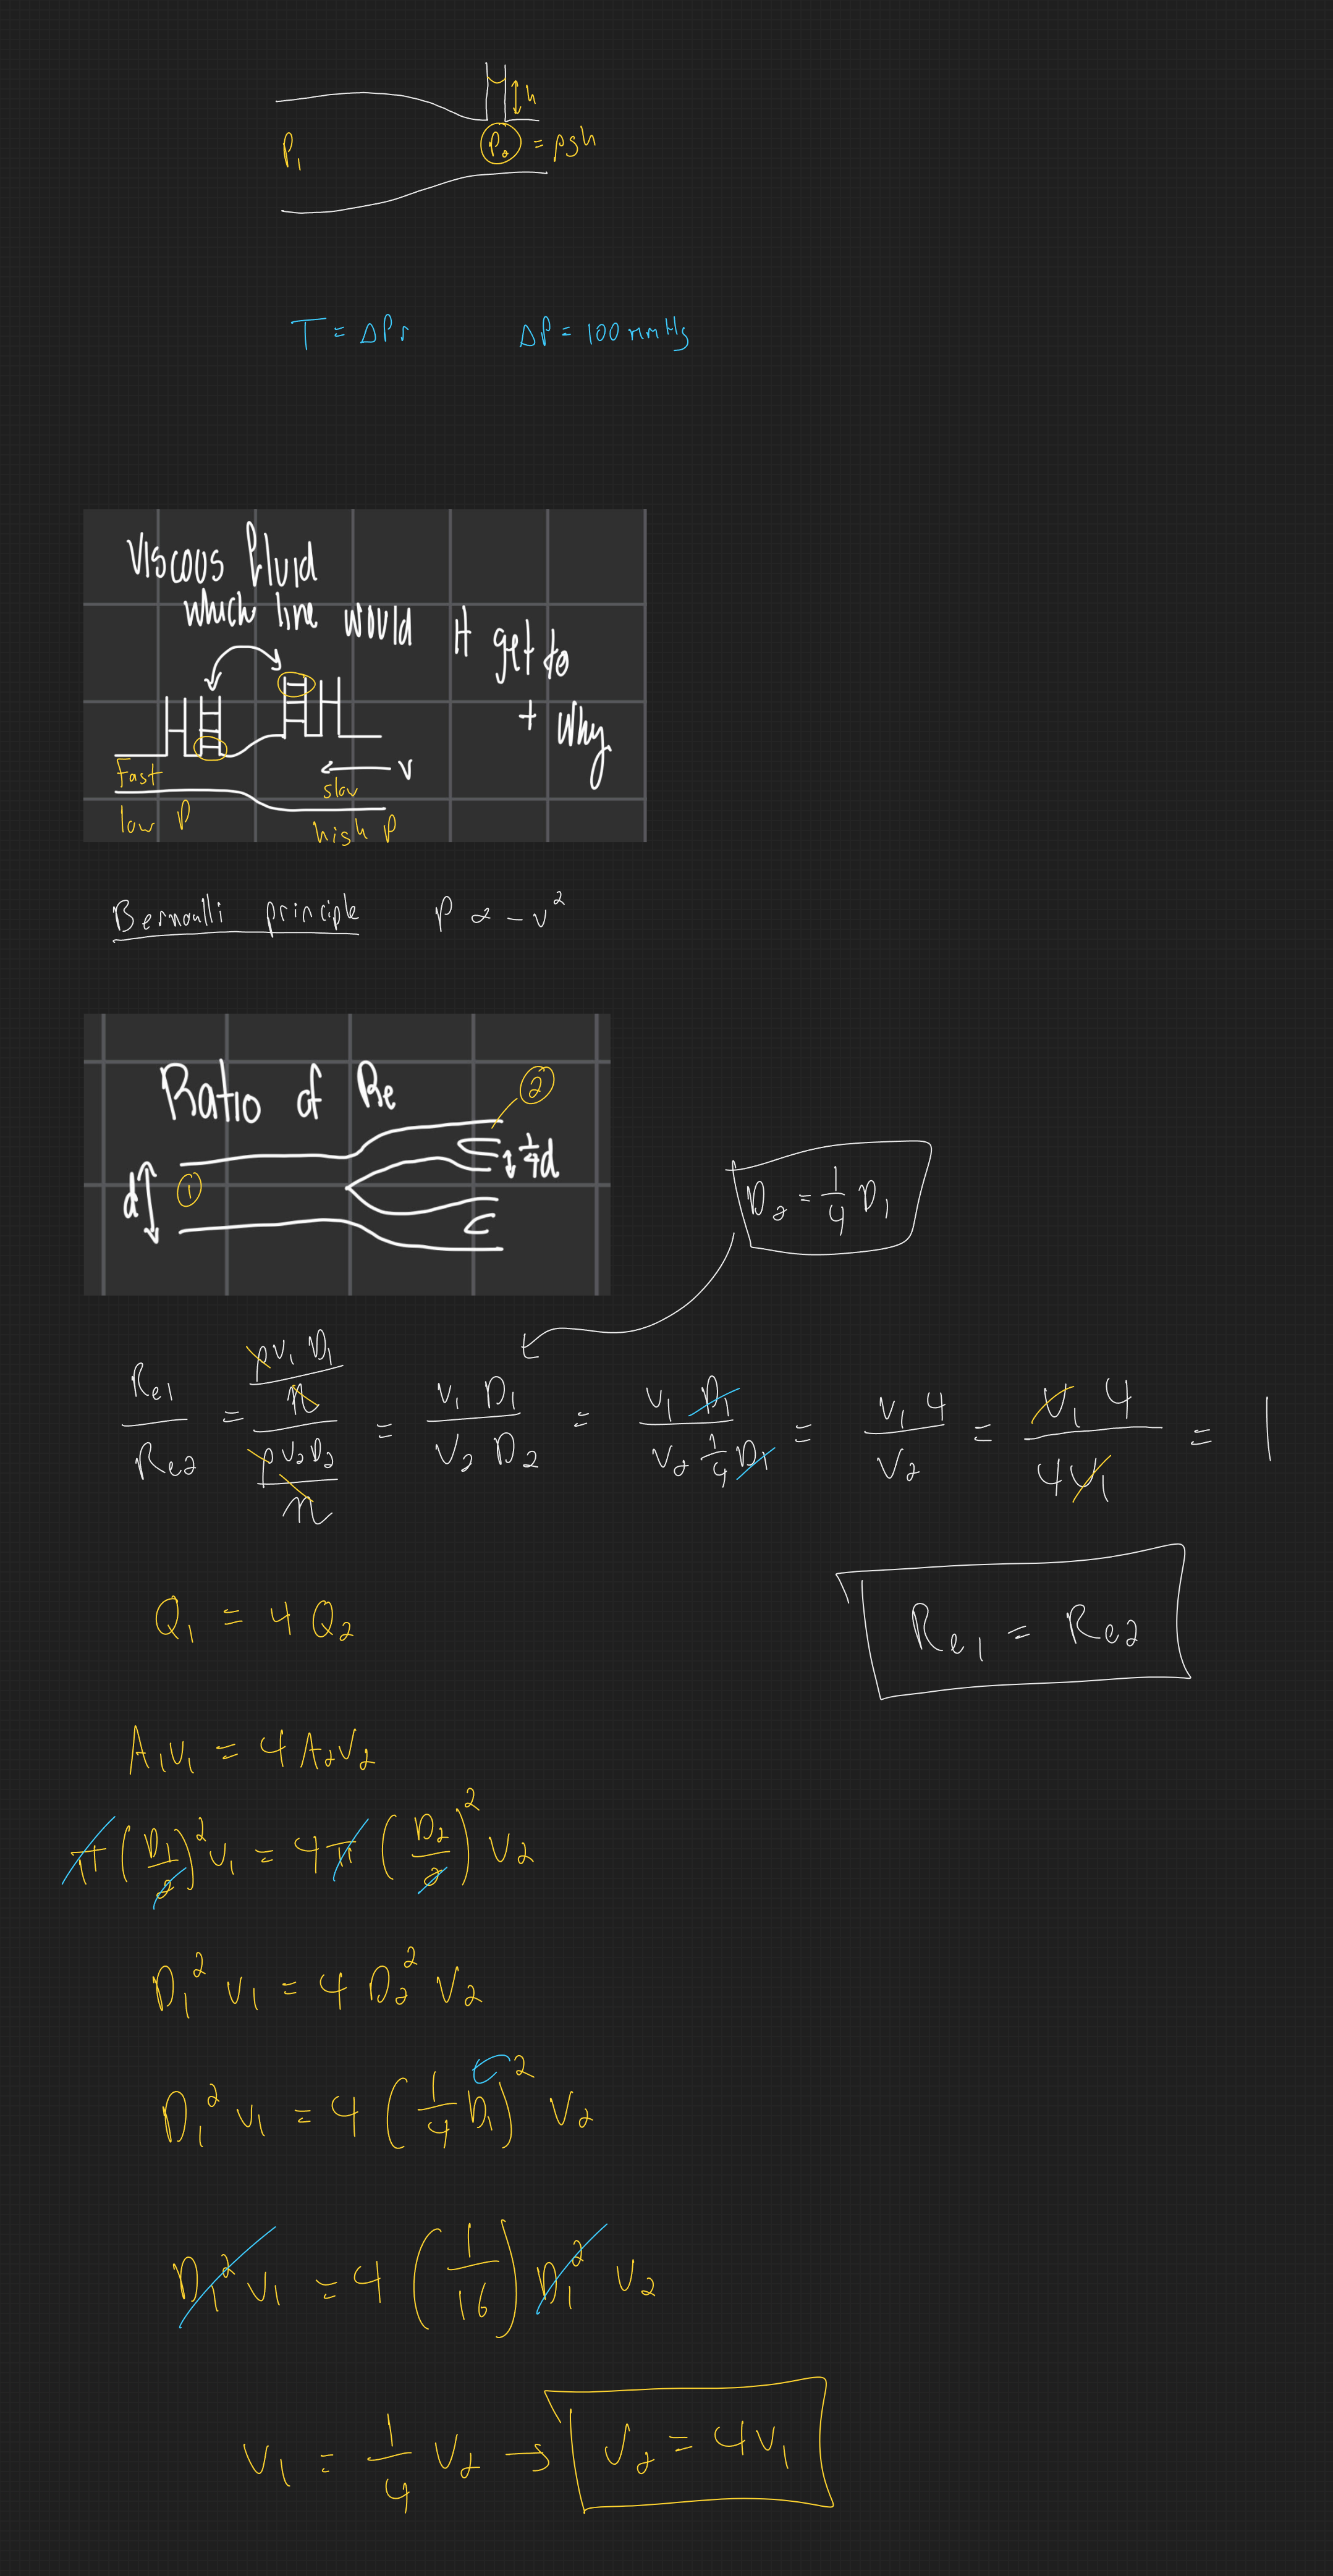 h
P₁
P₀ = ρgh
T = ΔPr ΔP = 100 mmHg
Viscous fluid
which line would it get to
+ why
Fast
V
slow
low P
high P
Bernoulli principle P ∝ - v²
Ratio of Re
②
d ① ¼d
D₂ = 1/4 D₁
Re1/Re2 = (ρv₁D₁/η)/(ρv₂D₂/η) = v₁D₁/v₂D₂ = v₁D₁/(v₂ 1/4 D₁) = v₁4/v₂ = v₁4/4v₁ = 1
Q₁ = 4Q₂
Re₁ = Re2
A₁v₁ = 4A₂v₂
π(D₁/2)²v₁ = 4π(D₂/2)²v₂
D₁²v₁ = 4D₂²v₂
D₁²v₁ = 4(1/4 D₁)²v₂
D₁²v₁ = 4(1/16)D₁²v₂
v₁ = 1/4 v₂ → v₂ = 4v₁